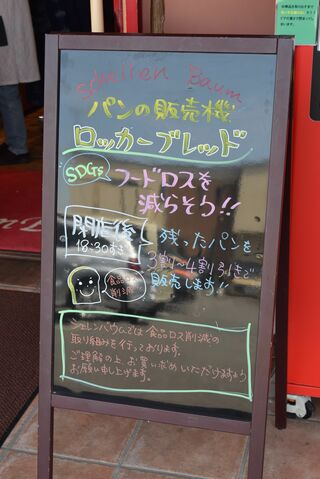 Schellen Baum
パンの販売機
ロッカーブレッド
SDGs
フードロスを
減らそう!!
閉店後
18:30すぎ
残ったパンを
3割〜4割引きで
販売します!!
食品ロス
削減
シェレンバウムでは食品ロス削減の
取り組みを行っております。
ご理解の上お買い求めいただけますよう
お願い申し上げます。